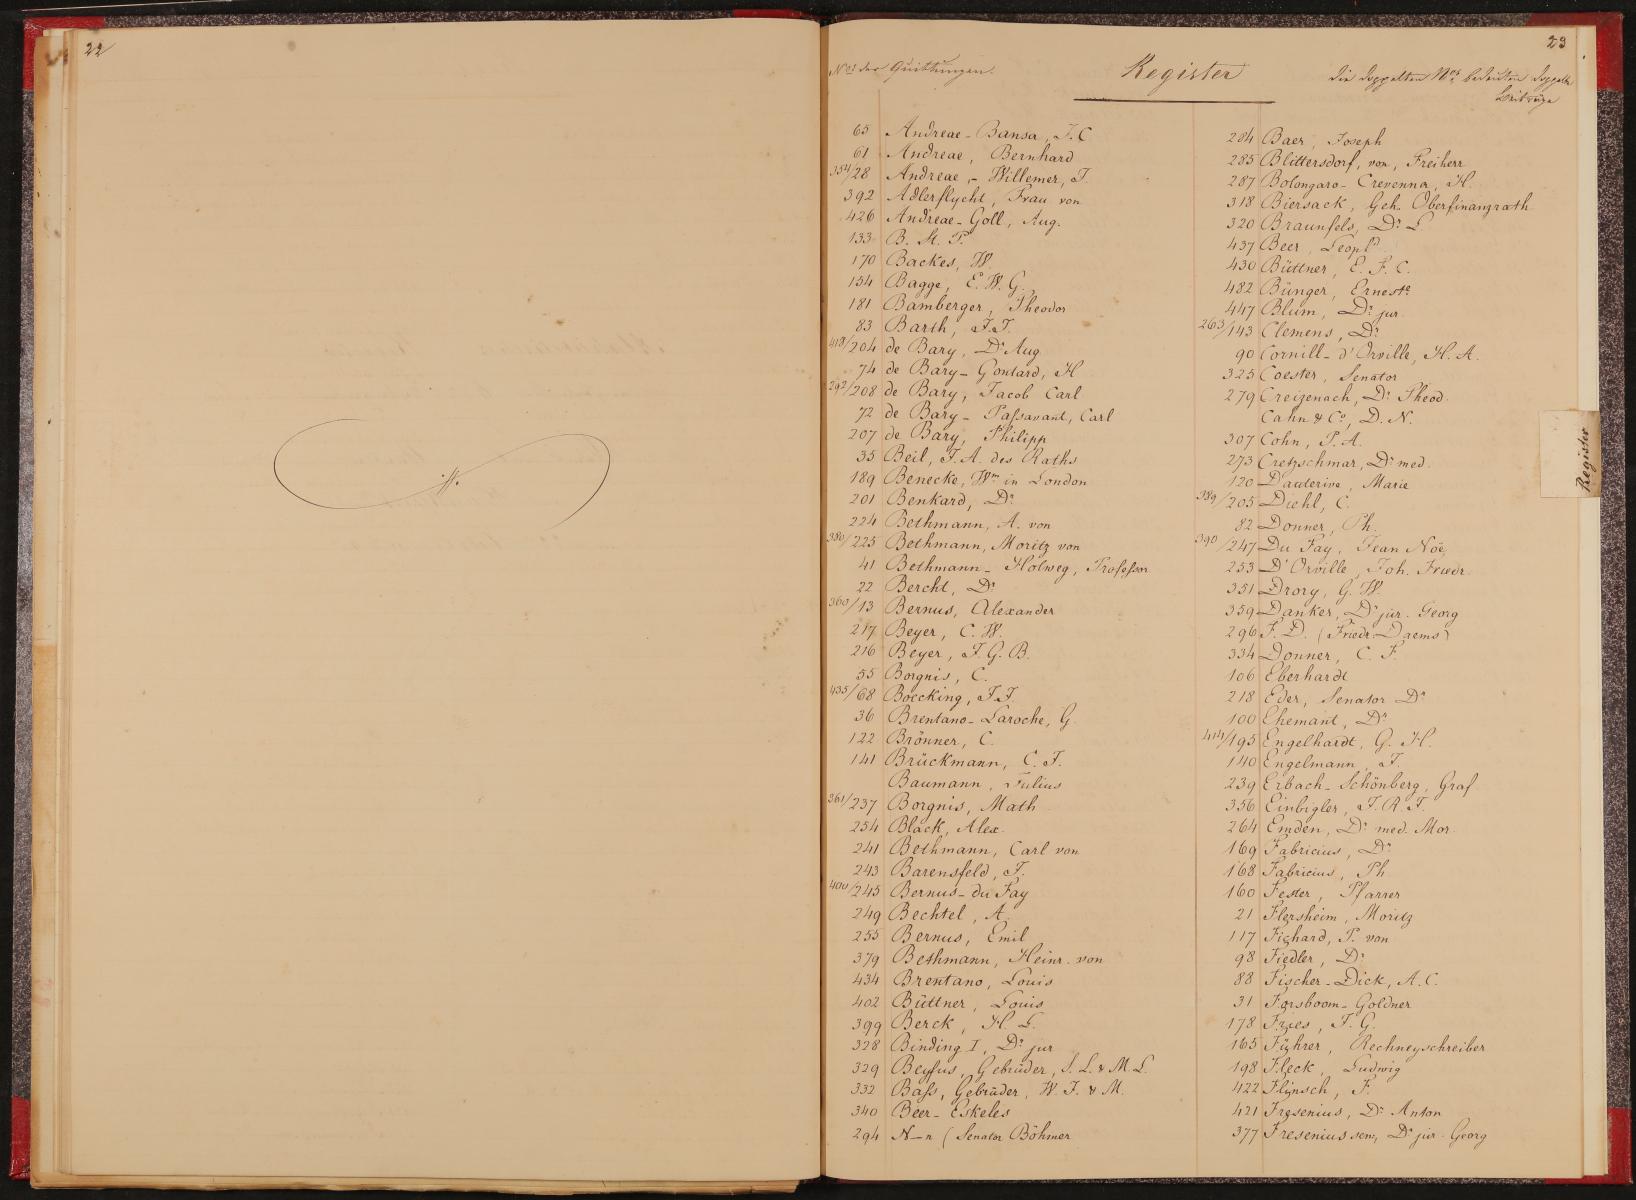 22
23
Nos der Quittungen.
Register
Die doppelten Nos bedeuten doppelte
Beiträge
65 Andreae-Bansa, J. C
61 Andreae, Bernhard
354/28 Andreae,-Willemer, J.
392 Adlerflycht, Frau von
426 Andreae-Goll, Aug.
133 B. St. P.
170 Backes, W.
154 Bagge, E. W. G.
181 Bamberger, Theodor
83 Barth, J. J.
418/204 de Bary, Dr Aug
74 de Bary-Gontard, H
292/208 de Bary, Jacob Carl
72 de Bary-Passavant, Carl
207 de Bary, Philipp
35 Beil, J. A. des Raths
189 Benecke, Wm in London
201 Benkard, Dr
224 Bethmann, A. von
380/225 Bethmann, Moritz von
41 Bethmann-Holweg, Professor
22 Bercht, Dr
360/13 Bernus, Alexander
217 Beyer, C. W.
216 Beyer, J. G. B.
55 Borgnis, C.
435/68 Boecking, J. J.
36 Brentano-Laroche, G.
122 Brönner, C.
141 Brückmann, C. J.
Baumann, Julius
361/237 Borgnis, Math
254 Black, Alex.
241 Bethmann, Carl von
243 Barensfeld, J.
400/245 Bernus-du Fay
249 Bechtel, A.
255 Bernus, Emil
379 Bethmann, Heinr. von
434 Brentano, Louis
402 Büttner, Louis
399 Berck, H. L.
328 Binding I, Dr jur
329 Beyfus, Gebrüder, S. L. & M. L.
332 Bass, Gebrüder, W. J. & M.
340 Beer-Eskeles
294 N-n (Senator Böhmer
284 Baer, Joseph
285 Blittersdorf, von, Freiherr
287 Bolongaro-Crevenna, H.
318 Biersack, Geh. Oberfinanzrath
320 Braunfels, Dr L
437 Beer, Leopld
430 Büttner, E. F. C.
482 Bünger, Erneste
447 Blum, Dr jur.
263/143 Clemens, Dr
90 Cornill-d'Orville, H. A.
325 Coester, Senator
279 Creizenach, Dr Theod.
Cahn & Co, D. N.
307 Cohn, P. A.
273 Cretzschmar, Dr med.
120 Dauterive, Marie
389/205 Diehl, C.
82 Donner, Ph.
390/247 Du Fay, Jean Noë,
253 D'Orville, Joh. Friedr.
351 Drory, G. W.
359 Danker, Dr jur. Georg
296 F. D. (Friedr. Daems)
334 Donner, C. F.
106 Eberhardt
218 Eder, Senator Dr
100 Ehemant, Dr
414/195 Engelhardt, G. H.
140 Engelmann, J.
239 Erbach-Schönberg, Graf
356 Einbigler, J. A. J.
264 Emden, Dr med. Mor.
169 Fabricius, Dr
168 Fabricius, Ph
160 Fester, Pfarrer
21 Flersheim, Moritz
117 Fichard, P. von
98 Fiedler, Dr
88 Fischer-Dick, A. C.
31 Forsboom-Goldner
178 Fries, J. G.
165 Führer, Rechneyschreiber
198 Fleck, Ludwig
422 Flinsch, F.
421 Fresenius, Dr Anton
377 Fresenius sen, Dr jur. Georg
Register